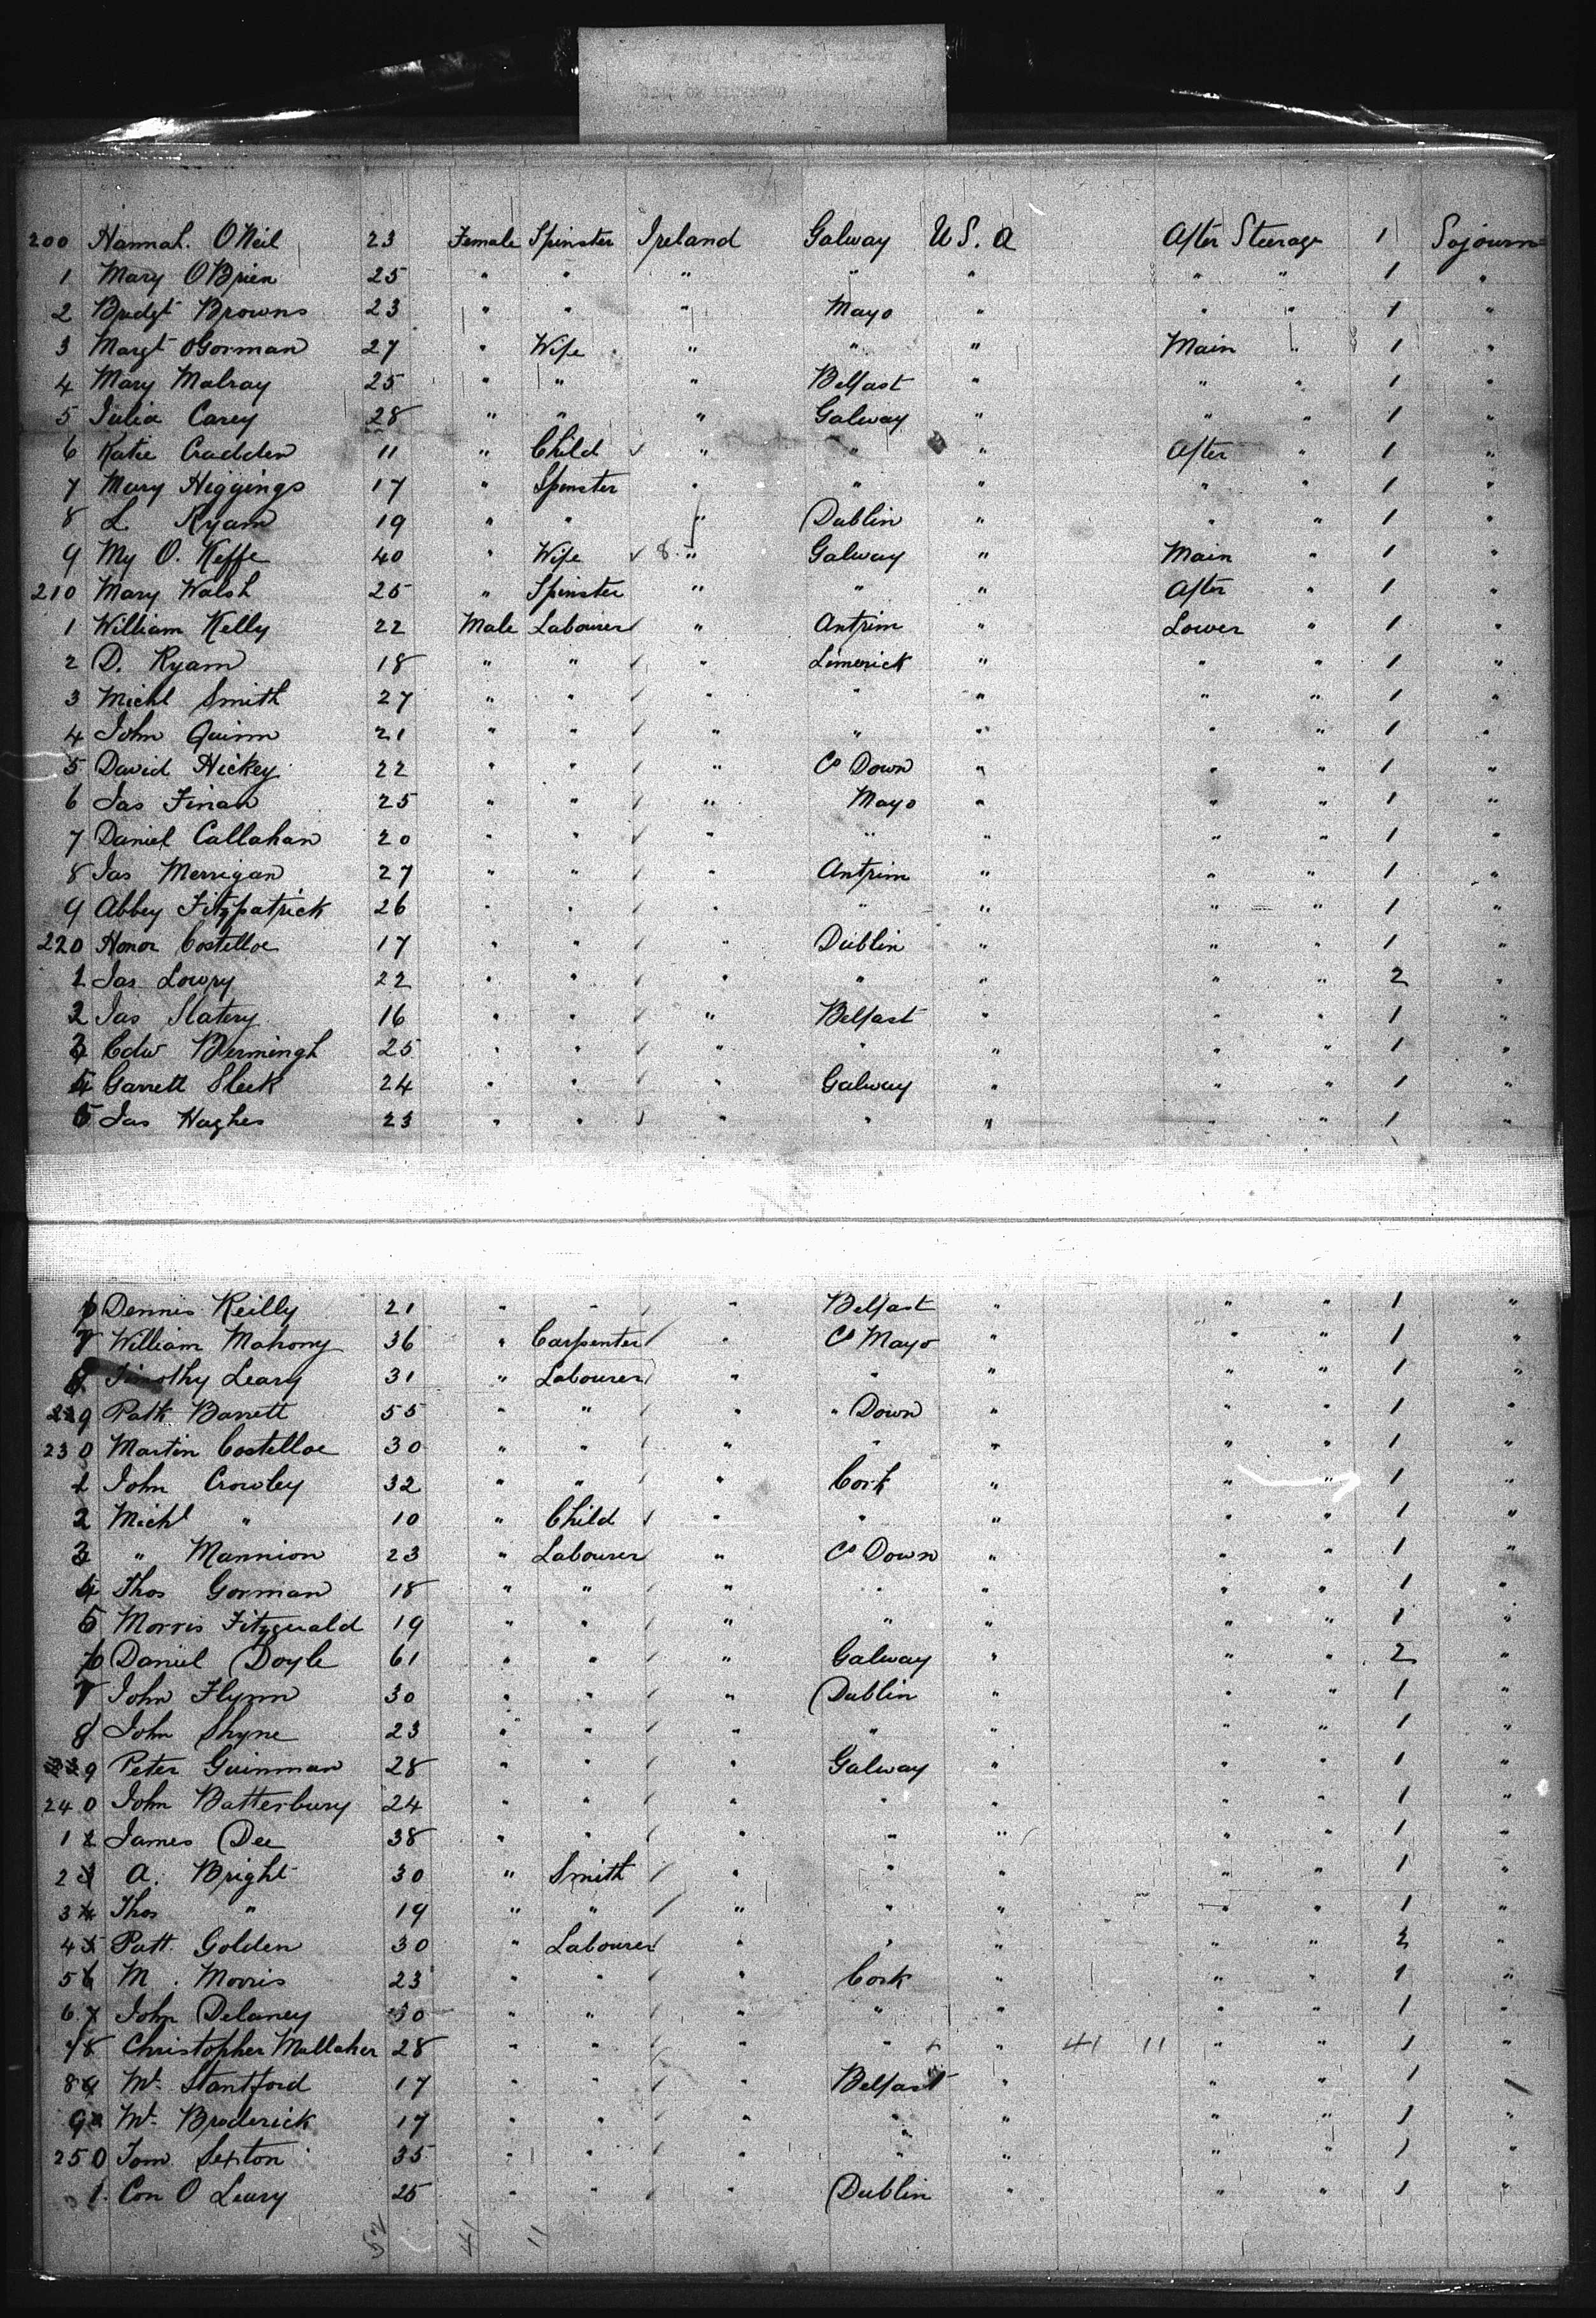 200 Hannah. O'Neil 23 Female Spinster Ireland Galway U S. A After Steerage 1 Sojourn
1 Mary O'Brien 25 " " " " " " " 1 "
2 Bridgt Browns 23 " " " Mayo " " " 1 "
3 Margt O'Gorman 27 " Wife " " " Main " 1 "
4 Mary Malray 25 " " " Belfast " " " 1 "
5 Julia Carey 28 " " " Galway " " " 1 "
6 Katie Cradden 11 " Child " " " After " 1 "
7 Mary Higgings 17 " Spinster " " " " " 1 "
8 L Ryam 19 " " " Dublin " " " 1 "
9 My O. Keffe 40 " Wife 8 " Galway " Main " 1 "
210 Mary Walsh 25 " Spinster " " " After " 1 "
1 William Kelly 22 Male Labourer " Antrim " Lower " 1 "
2 D. Ryam 18 " " " Limerick " " " 1 "
3 Michl Smith 27 " " " " " " " 1 "
4 John Quinn 21 " " " " " " " 1 "
5 David Hickey 22 " " " Co Down " " " 1 "
6 Jas Finan 25 " " " Mayo " " " 1 "
7 Daniel Callahan 20 " " " " " " " 1 "
8 Jas Merrigan 27 " " " Antrim " " " 1 "
9 Abbey Fitzpatrick 26 " " " " " " " 1 "
220 Honor Costelloe 17 " " " Dublin " " " 1 "
1 Jas Lowry 22 " " " " " " " 2 "
2 Jas Slatery 16 " " " Belfast " " " 1 "
3 Edw Bermingh 25 " " " " " " " 1 "
4 Garrett Sleek 24 " " " Galway " " " 1 "
5 Jas Hughes 23 " " " " " " " 1 "
6 Dennis Reilly 21 " " " Belfast " " " 1 "
7 William Mahony 36 " Carpenter " Co Mayo " " " 1 "
8 Timothy Leary 31 " Labourer " " " " " 1 "
229 Patk Barrett 55 " " " " Down " " " 1 "
230 Martin Costelloe 30 " " " " " " " 1 "
1 John Crowley 32 " " " Cork " " " 1 "
2 Michl " 10 " Child " " " " " 1 "
3 " Mannion 23 " Labourer " Co Down " " " 1 "
4 Thos Gorman 18 " " " " " " " 1 "
5 Morris Fitzgerald 19 " " " " " " " 1 "
6 Daniel Doyle 61 " " " Galway " " " 2 "
7 John Flynn 30 " " " Dublin " " " 1 "
8 John Shyne 23 " " " " " " " 1 "
9 Peter Guinman 28 " " " Galway " " " 1 "
240 John Batterbury 24 " " " " " " " 1 "
1 James Dee 38 " " " " " " " 1 "
2 A. Bright 30 " Smith " " " " " 1 "
3 Thos " 19 " " " " " " " 1 "
4 Patt. Golden 30 " Labourer " " " " " 2 "
5 M. Morris 23 " " " Cork " " " 1 "
6 John Delaney 30 " " " " " " " 1 "
7 Christopher Mullaher 28 " " " " " 41 11 " " 1 "
8 Mt. Stantford 17 " " " Belfast " " " 1
9 Mt. Broderick 17 " " " " " " " 1 "
250 Tom Sexton 35 " " " " " " " 1 "
1. Con O Leary 25 " " " Dublin " " " 1 "
52 41 11